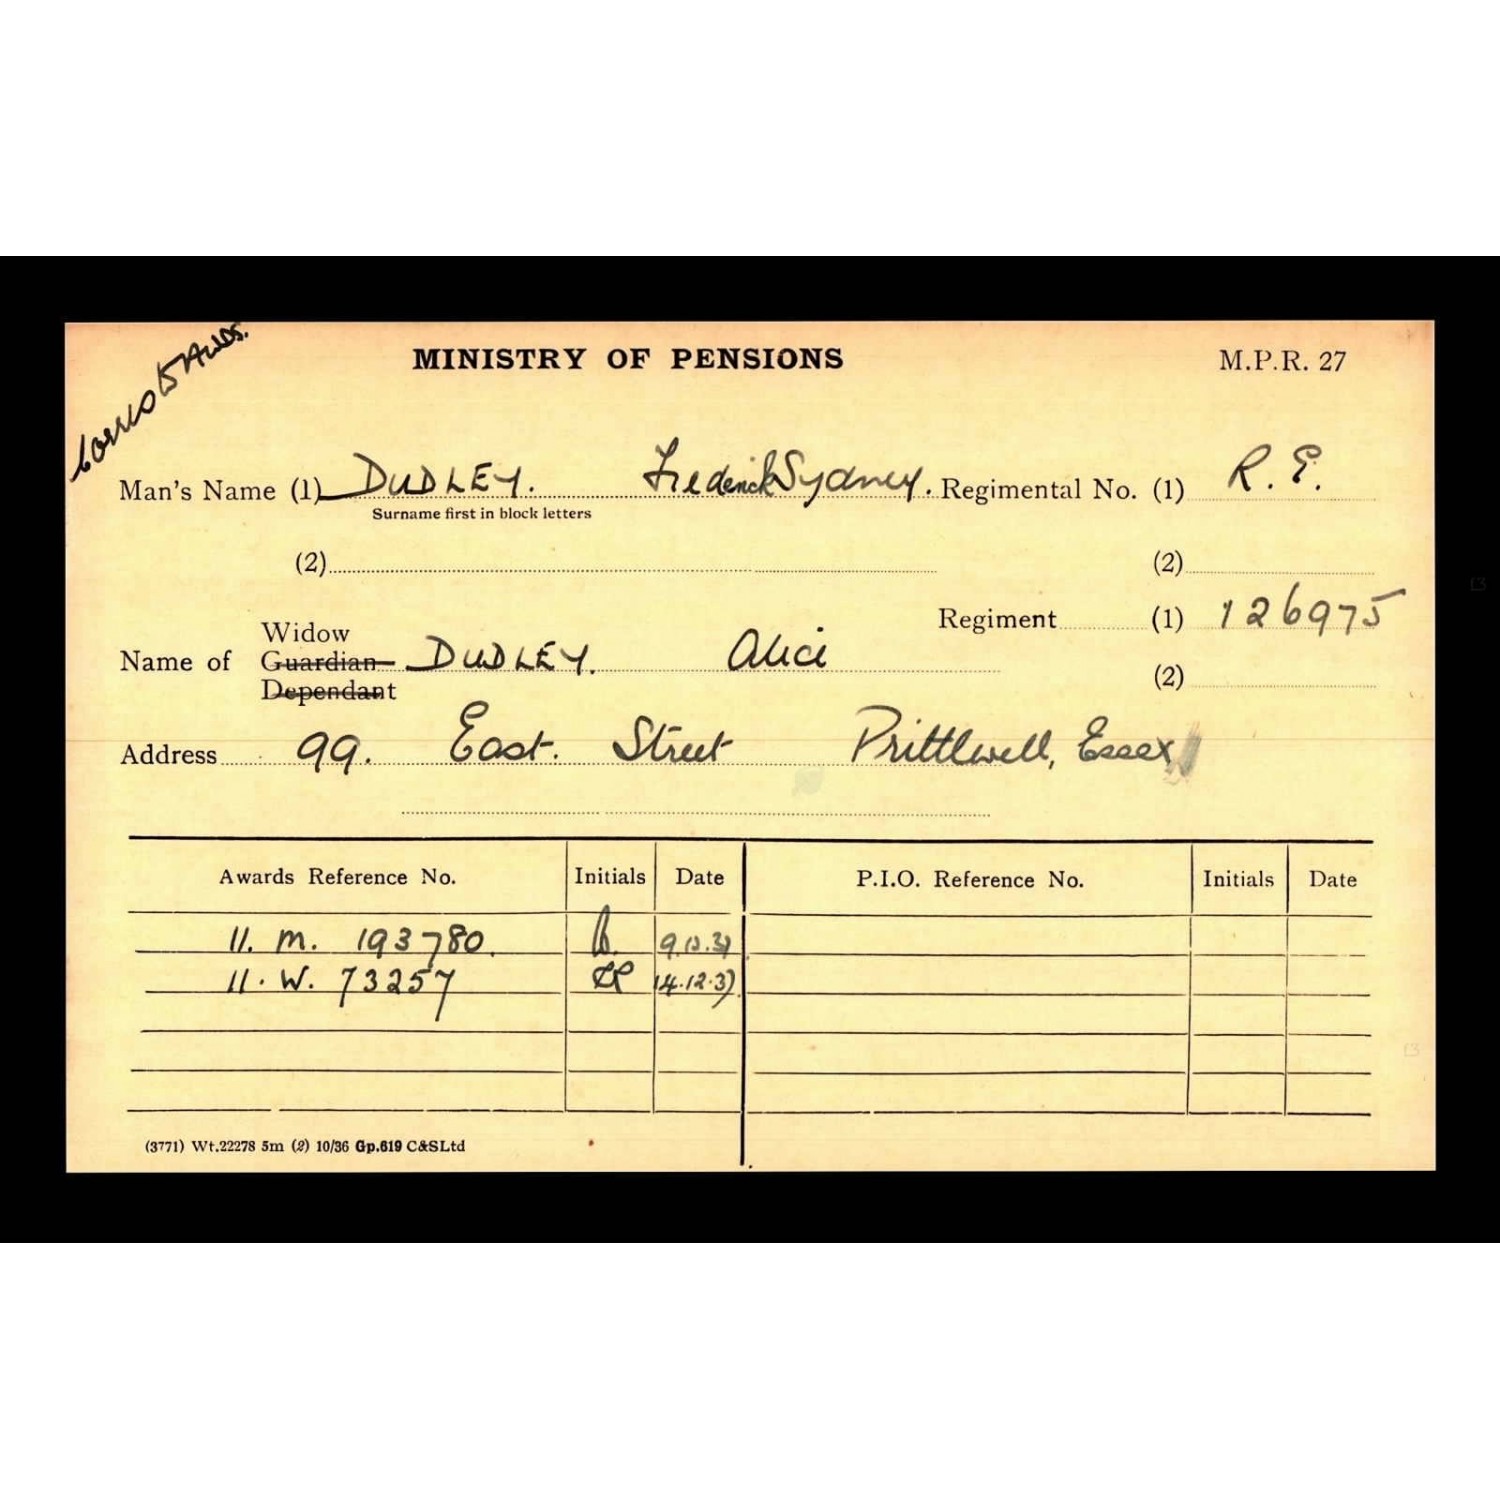 MINISTRY OF PENSIONS M.P.R. 27
Awds.
Man's Name (1) DUDLEY. Frederick Sydney. Regimental No. (1) R. E.
Surname first in block letters
(2) (2)
Regiment (1) 126975
Widow
Name of Guardian DUDLEY. Alice
Dependant (2)
Address 99. East. Street Prittlwell, Essex
Awards Reference No. Initials Date P.I.O. Reference No. Initials Date
11. M. 193780.
11. W. 73257 14.12.37
(3771) Wt.22278 5m (2) 10/36 Gp.619 C&SLtd